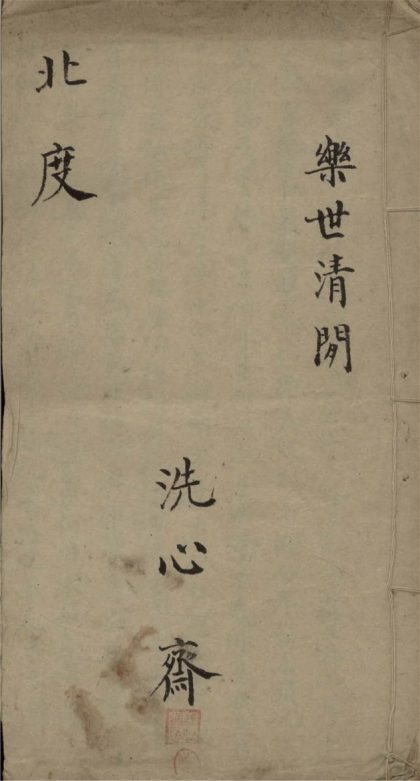 樂世清閒
洗心齋
北度